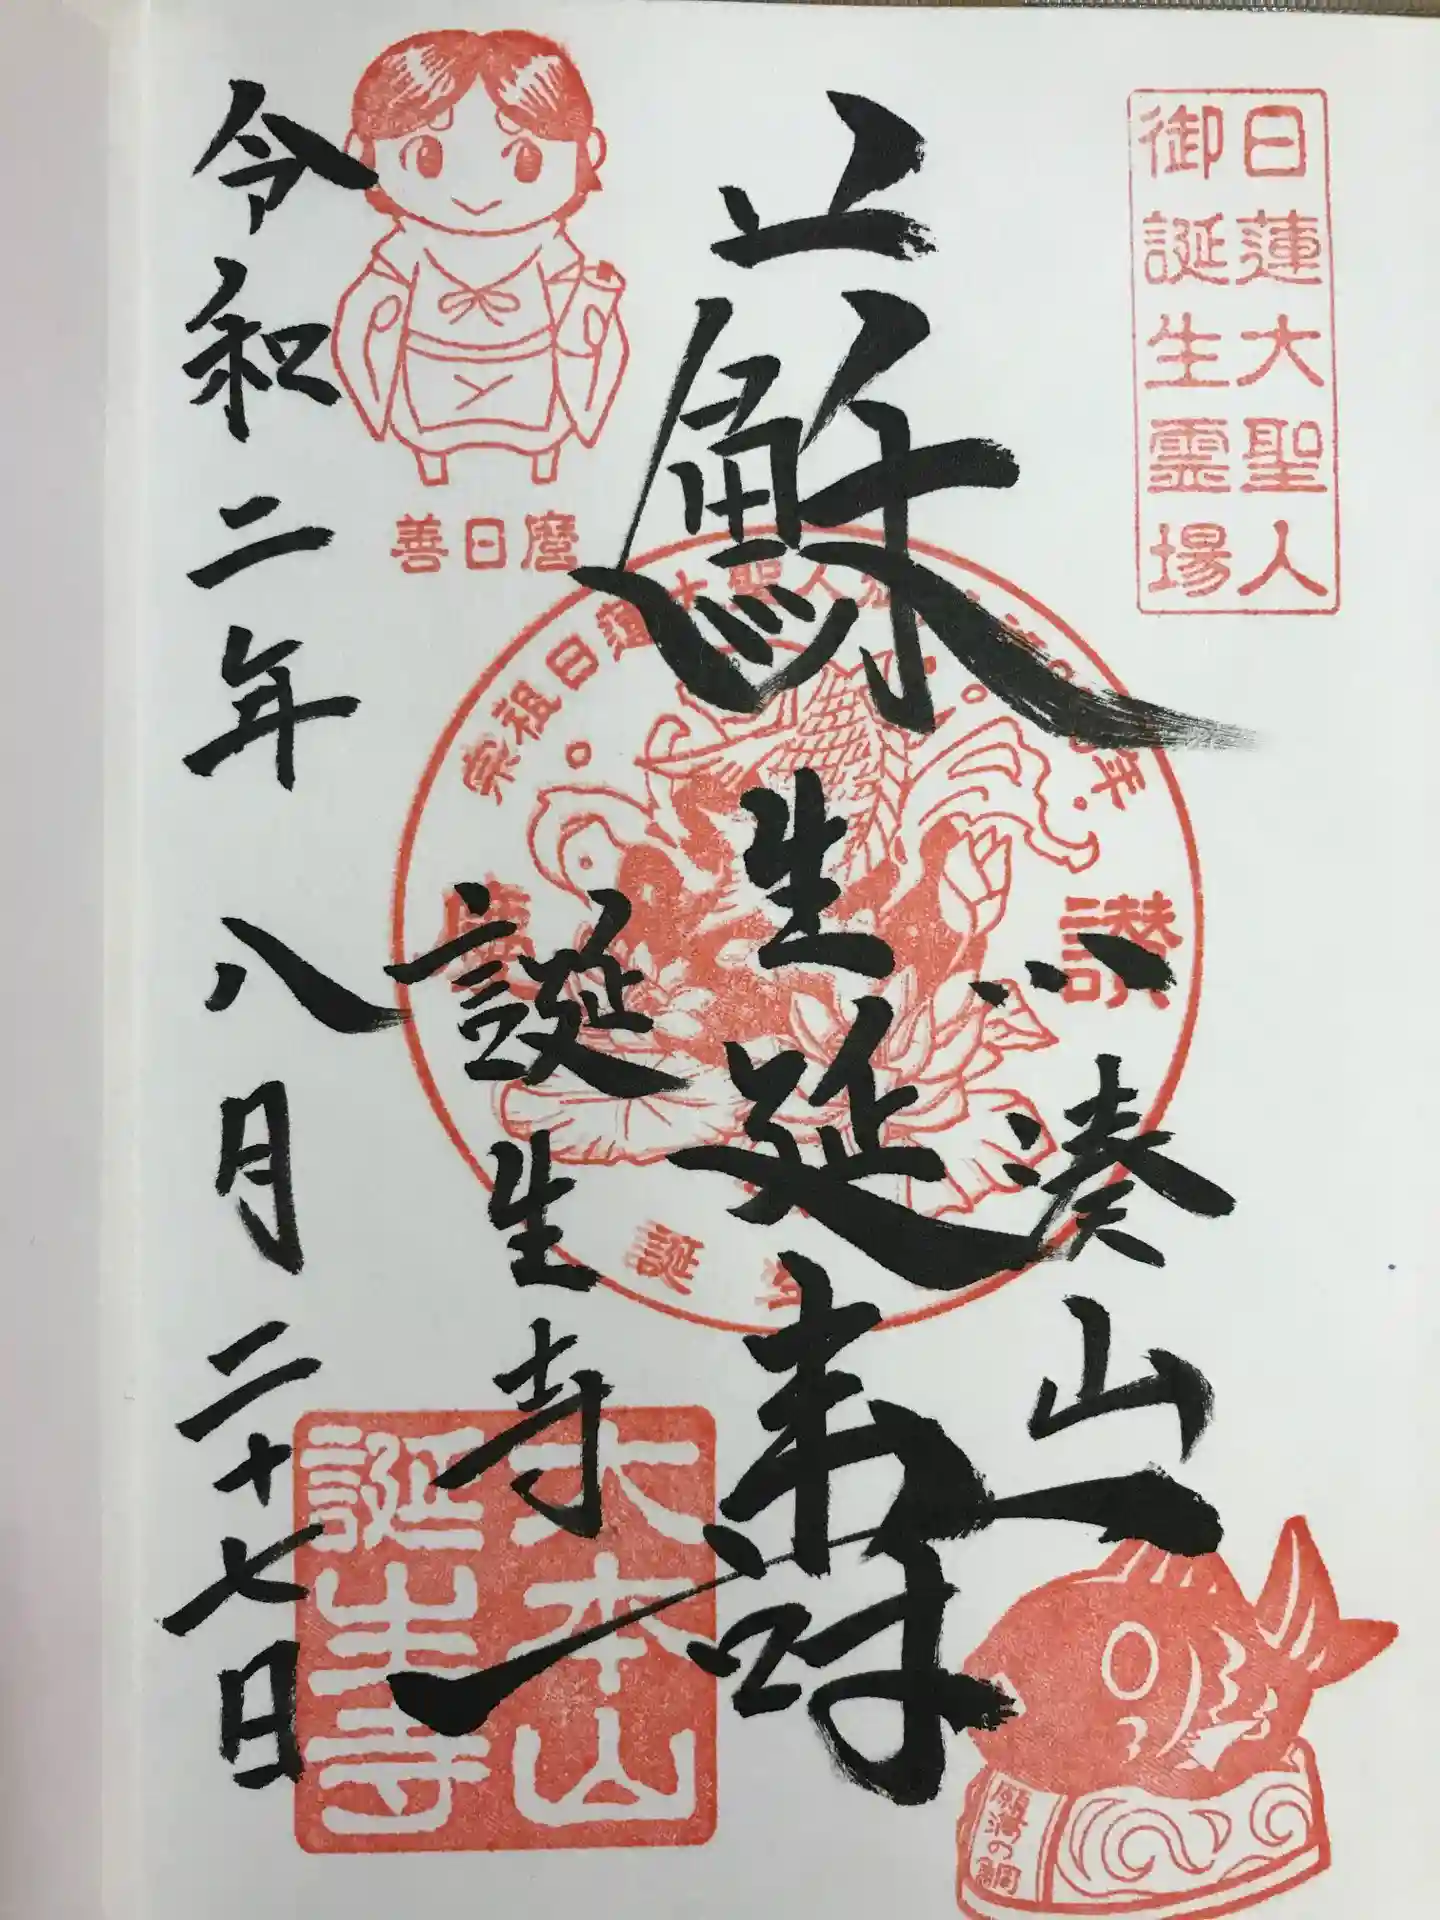 日蓮大聖人
御誕生霊場
小湊山
蘇生延寿
誕生寺
令和二年八月二十七日
善日麿
宗祖日蓮大聖人
讃
大本山
誕生寺
願満の鯛